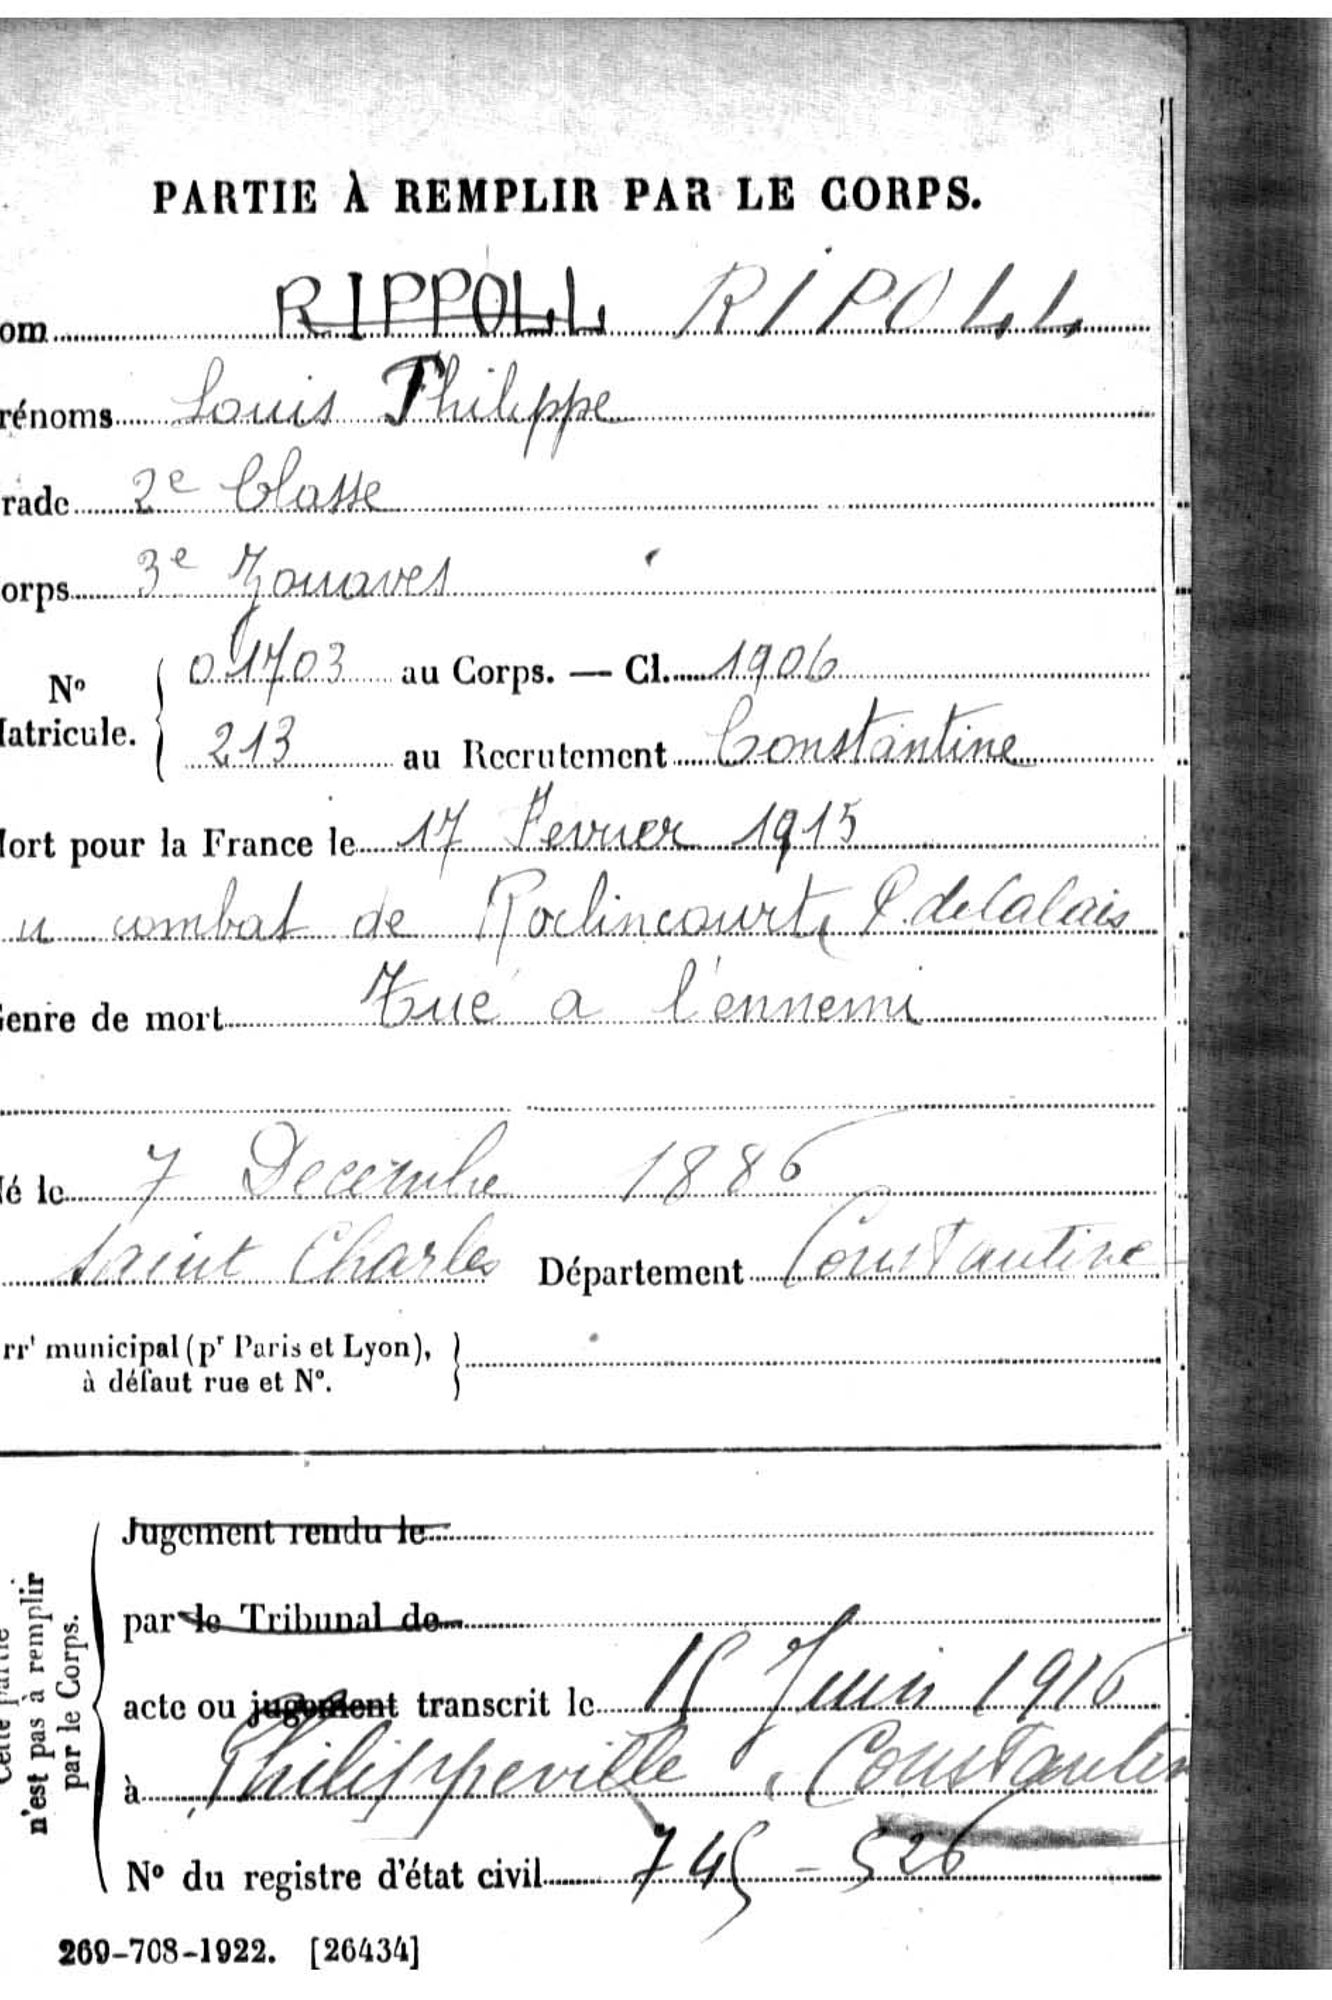 PARTIE À REMPLIR PAR LE CORPS.
om RIPPOLL RIPOLL
rénoms Louis Philippe
rade 2e Classe
orps 3e Zouaves
No latricule. 01703 au Corps. — Cl. 1906
213 au Recrutement Constantine
lort pour la France le 17 Fevrier 1915
u combat de Roclincourt, P. de Calais
enre de mort Tué a l'ennemi
é le 7 Decembre 1886
Saint Charles Département Constantine
rrt municipal (pr Paris et Lyon),
à défaut rue et No.
Cette partie
n'est pas à remplir
par le Corps.
Jugement rendu le
par le Tribunal de
acte ou jugement transcrit le 15 Juin 1916
à Philippeville, Constantin
No du registre d'état civil 745 - 526
269-708-1922. [26434]